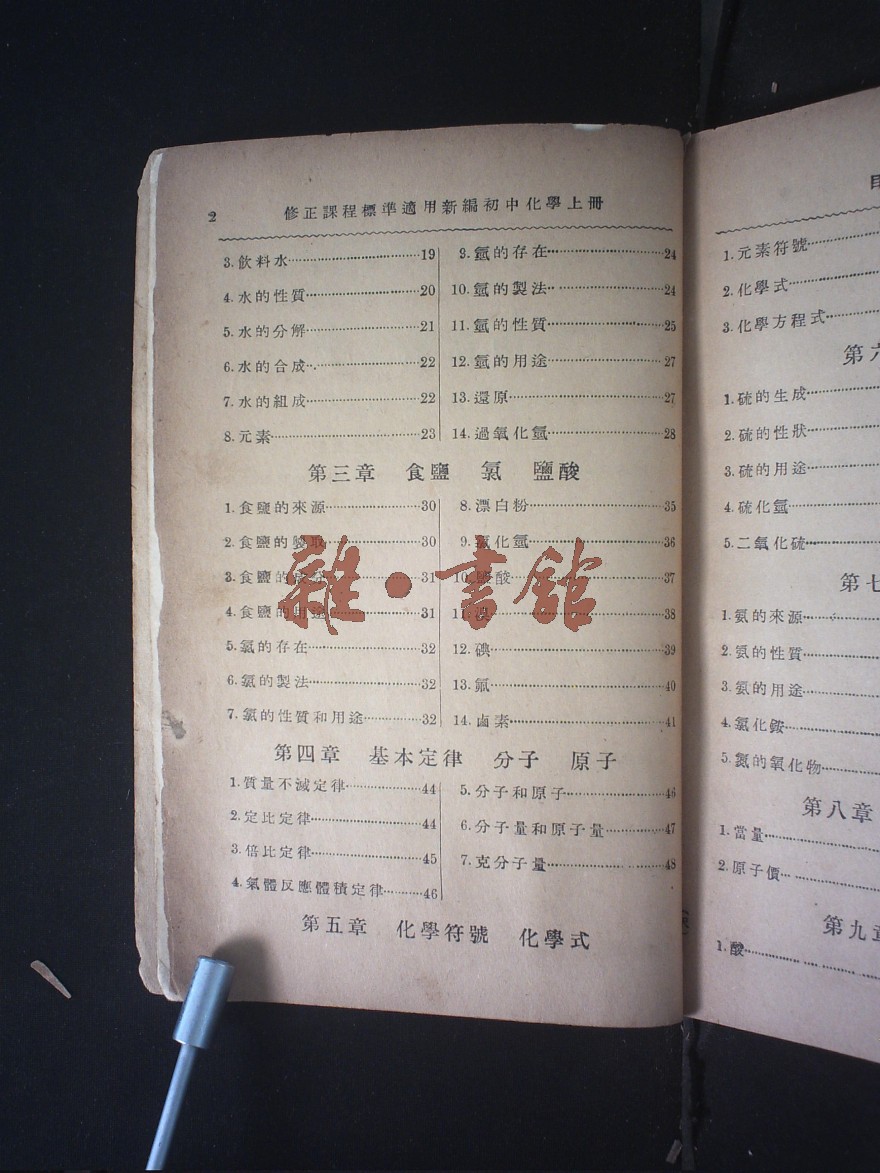 2
修正課程標準適用新編初中化學上冊
3.飲料水……19
4.水的性質……20
5.水的分解……21
6.水的合成……22
7.水的組成……22
8.元素……23
9.氫的存在……24
10.氫的製法……24
11.氫的性質……25
12.氫的用途……27
13.還原……27
14.過氧化氫……28
第三章 食鹽 氯 鹽酸
1.食鹽的來源……30
2.食鹽的製取……30
3.食鹽的成分……31
4.食鹽的用途……31
5.氯的存在……32
6.氯的製法……32
7.氯的性質和用途……32
8.漂白粉……35
9.氯化氫……36
10.鹽酸……37
11.溴……38
12.碘……39
13.氟……40
14.鹵素……41
第四章 基本定律 分子 原子
1.質量不滅定律……44
2.定比定律……44
3.倍比定律……45
4.氣體反應體積定律……46
5.分子和原子……46
6.分子量和原子量……47
7.克分子量……48
第五章 化學符號 化學式
1.元素符號
2.化學式
3.化學方程式
1.硫的生成
2.硫的性狀
3.硫的用途
4.硫化氫
5.二氧化硫
第七
1.氨的來源
2.氨的性質
3.氨的用途
4.氯化銨
5.氮的氧化物
第八章
1.當量
2.原子價
第九章
1.酸
雜·書館